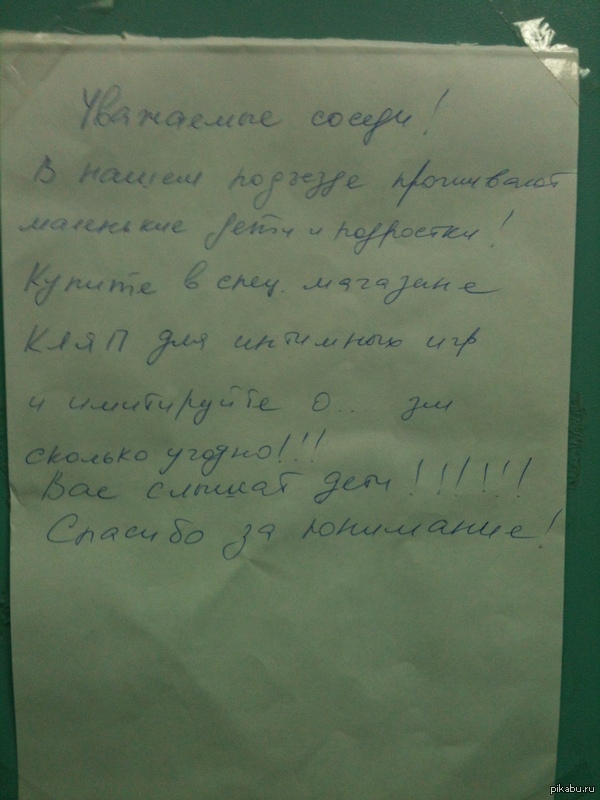 Уважаемые соседи!
В нашем подъезде проживают
маленькие дети и подростки!
Купите в спец. магазине
КЛЯП для интимных игр
и имитируйте о.. зм
сколько угодно!!!
Вас слышат дети!!!!!!
Спасибо за понимание!
pikabu.ru